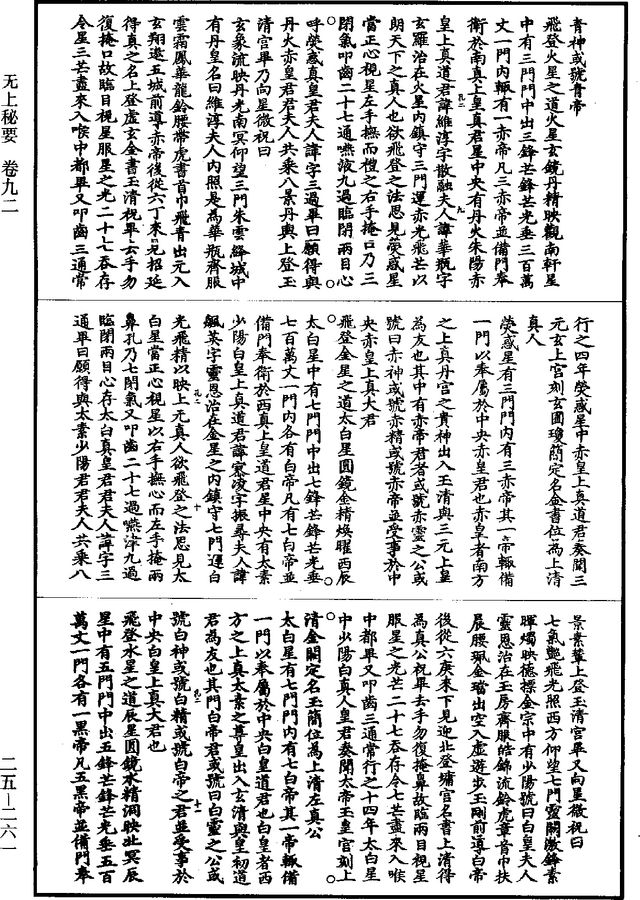 无上秘要 卷九二
青神或號青帝
飛登火星之道火星玄鏡丹精映觀南軒星
中有三門門中出三鋒芒鋒芒光垂三百萬
丈一門內輒有一赤帝凡三赤帝並備門奉
衛於南真上皇真君星中央有丹火朱陽赤
皇上真道君諱維淳字散融夫人諱華瓶字
玄羅治在火星內鎮守三門運赤光飛芒以
朗天下之真人也欲飛登之法思見熒惑星
當正心視星左手撫而檀之右手掩口乃三
閉氣叩齒二十七通嚥液九過臨閉兩目心
呼熒惑真皇君夫人諱字三過畢曰願得與
丹火赤皇君君夫人共乘八景丹輿上登玉
清宮畢乃向星微祝曰
玄象流映丹光南冥仰望三門朱雲絳城中
有丹皇名曰維淳夫人內照是為華瓶齊服
雲霜鳳華龍鈴腰帶虎書首巾飛青出元入
玄翔遨五城前導赤帝後從六丁來見招延
得真之名上登虛玄金書玉清祝畢去手勿
復掩口故臨目視星服星之光二十七吞存
令星三芒盡來入喉中都畢又叩齒三通常
行之四年熒惑星中赤皇上真道君奏聞三
元玄上宮刻玄圃瓊簡定名金書位為上清
真人
熒惑星有三門門內有三赤帝其一帝輒備
一門以奉屬於中央赤皇君也赤皇者南方
之上真丹宮之貴神出入玉清與三元上皇
為友也其中有赤帝君者或號赤靈之公或
號曰赤神或號赤精或號赤帝並受事於中
央赤皇上真大君
飛登金星之道太白星圓鏡金精煥曜西辰
太白星中有七門門中出七鋒芒鋒芒光垂
七百萬丈一門內各有白帝凡有七白帝並
備門奉衛於西真上皇道君星中央有太素
少陽白皇上真道君諱寥凌字振尋夫人諱
飆英字靈恩治在金星之內鎮守七門運白
光飛精以映上元真人欲飛登之法思見太
白星當正心視星以右手撫心而左手掩兩
鼻孔乃七閉氣又叩齒二十七過嚥津九過
臨閉兩目心存太白真皇君君夫人諱字三
通畢曰願得與太素少陽君君夫人共乘八
景素輦上登玉清宮畢又向星微祝曰
七氣飛光照西方仰望七門靈闕激鋒素
暉燭映德標金宗中有少陽號曰白皇夫人
靈恩治在玉房齊服皓錦流鈴虎章首巾扶
晨腰珮金璫出空入虛遊步玉剛前導白帝
後從六庚來下見迎北登墉宮名書上清得
為真公祝畢去手勿復掩鼻故臨兩目視星
服星之光芒二十七吞存令七芒盡來入喉
中都畢又叩齒三通常行之十四年太白星
中少陽白真人皇君奏聞太帝玉皇宮刻上
清金闕定名玉簡位為上清左真公
太白星有七門門內有七白帝其一帝輒備
一門以奉屬於中央白皇道君也白皇者西
方之上真太素之尊皇出入玄清與皇初道
君為友也其門白帝君或號曰白靈之公或
號白神或號白精或號白帝之君並受事於
中央白皇上真大君也
飛登水星之道辰星圓鏡水精洞映北冥辰
星中有五門門中出五鋒芒鋒芒光垂五百
萬丈一門各有一黑帝凡五黑帝並備門奉
二五—二六一